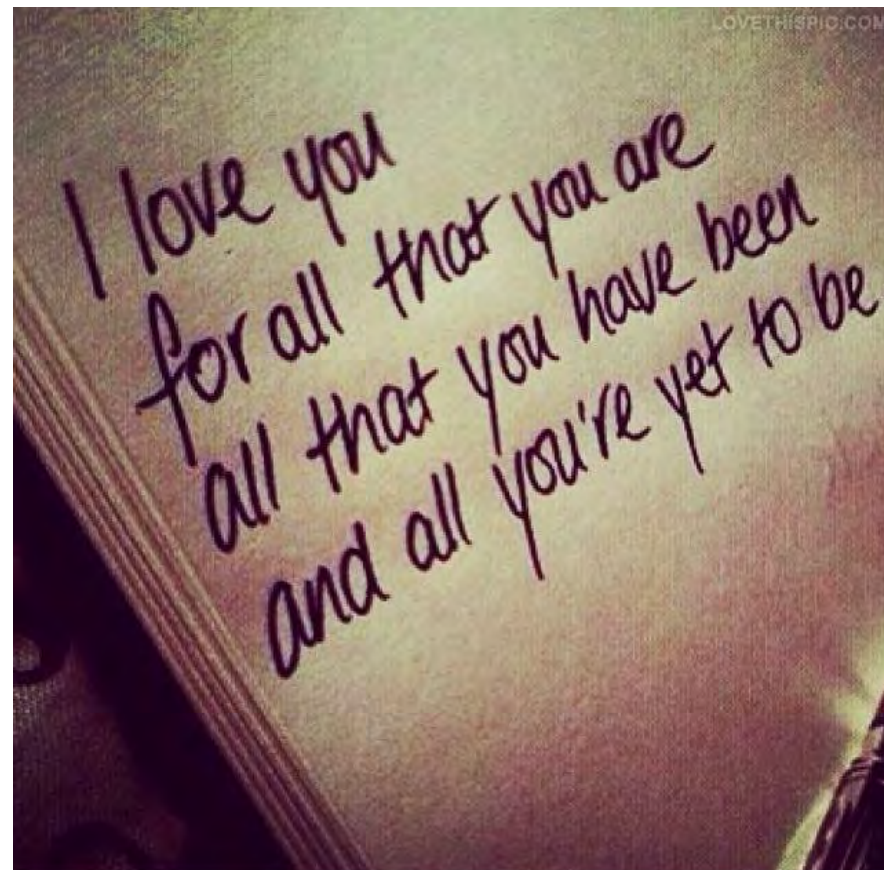 LOVETHISPIC.COM
I love you
for all that you are
all that you have been
and all you're yet to be